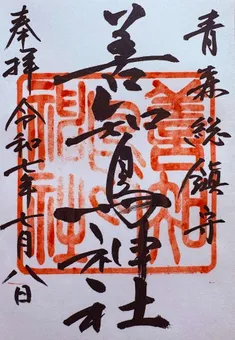 青森総鎮守
善知鳥神社
奉拝 令和七年七月八日
善知鳥神社